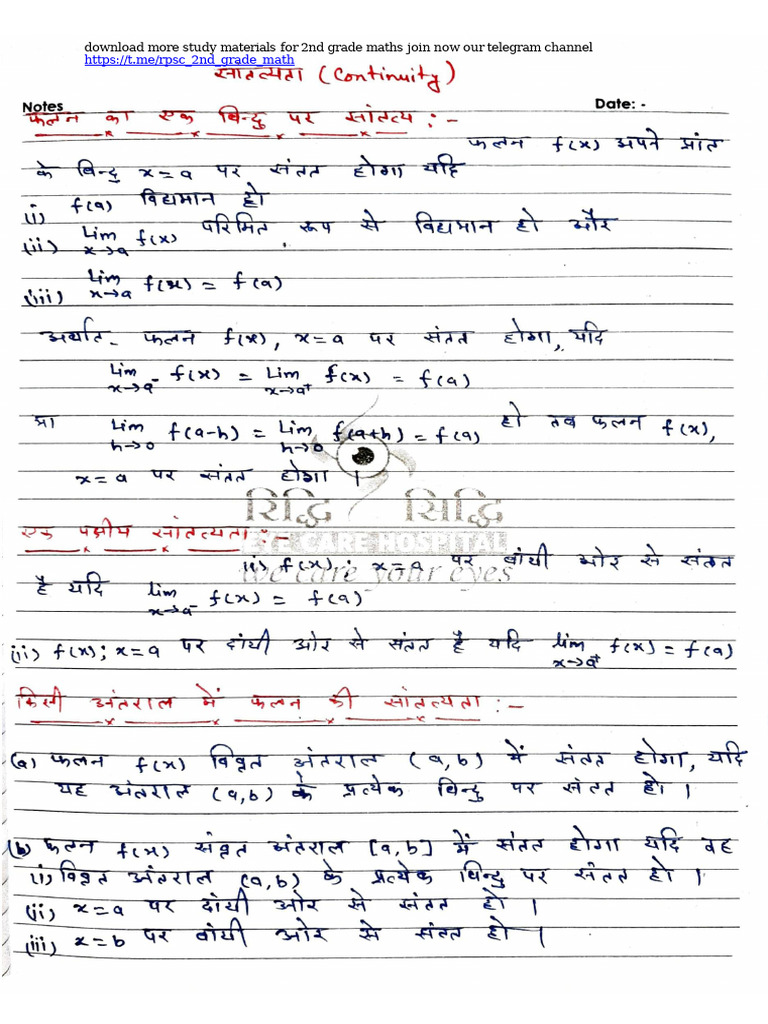 download more study materials for 2nd grade maths join now our telegram channel
https://t.me/rpsc_2nd_grade_math
सातत्यता (Continuity)
Notes Date: -
फलन का एक बिन्दु पर सांतत्य :-
फलन f(x) अपने प्रांत
के बिन्दु x=a पर संतत होगा यदि
(i) f(a) विद्यमान हो
(ii) Lim x→a f(x) परिमित रूप से विद्यमान हो और
(iii) Lim x→a f(x) = f(a)
अर्थात- फलन f(x), x=a पर संतत होगा, यदि
Lim x→a⁻ f(x) = Lim x→a⁺ f(x) = f(a)
या Lim h→0 f(a-h) = Lim h→0 f(a+h) = f(a) हो तब फलन f(x),
x=a पर संतत होगा ।
रिद्धि सिद्धि
एक पक्षीय सांतत्यता :-
EYE CARE HOSPITAL
(i) f(x); x=a पर बांयी ओर से संतत
we care your eyes
है यदि lim x→a⁻ f(x) = f(a)
(ii) f(x); x=a पर दांयी ओर से संतत है यदि lim x→a⁺ f(x) = f(a)
किसी अंतराल में फलन की सांतत्यता :-
(a) फलन f(x) विवृत अंतराल (a,b) में संतत होगा, यदि
यह अंतराल (a,b) के प्रत्येक बिन्दु पर संतत हो ।
(b) फलन f(x) संवृत अंतराल [a,b] में संतत होगा यदि वह
(i) विवृत अंतराल (a,b) के प्रत्येक बिन्दु पर संतत हो ।
(ii) x=a पर दांयी ओर से संतत हो ।
(iii) x=b पर बांयी ओर से संतत हो ।